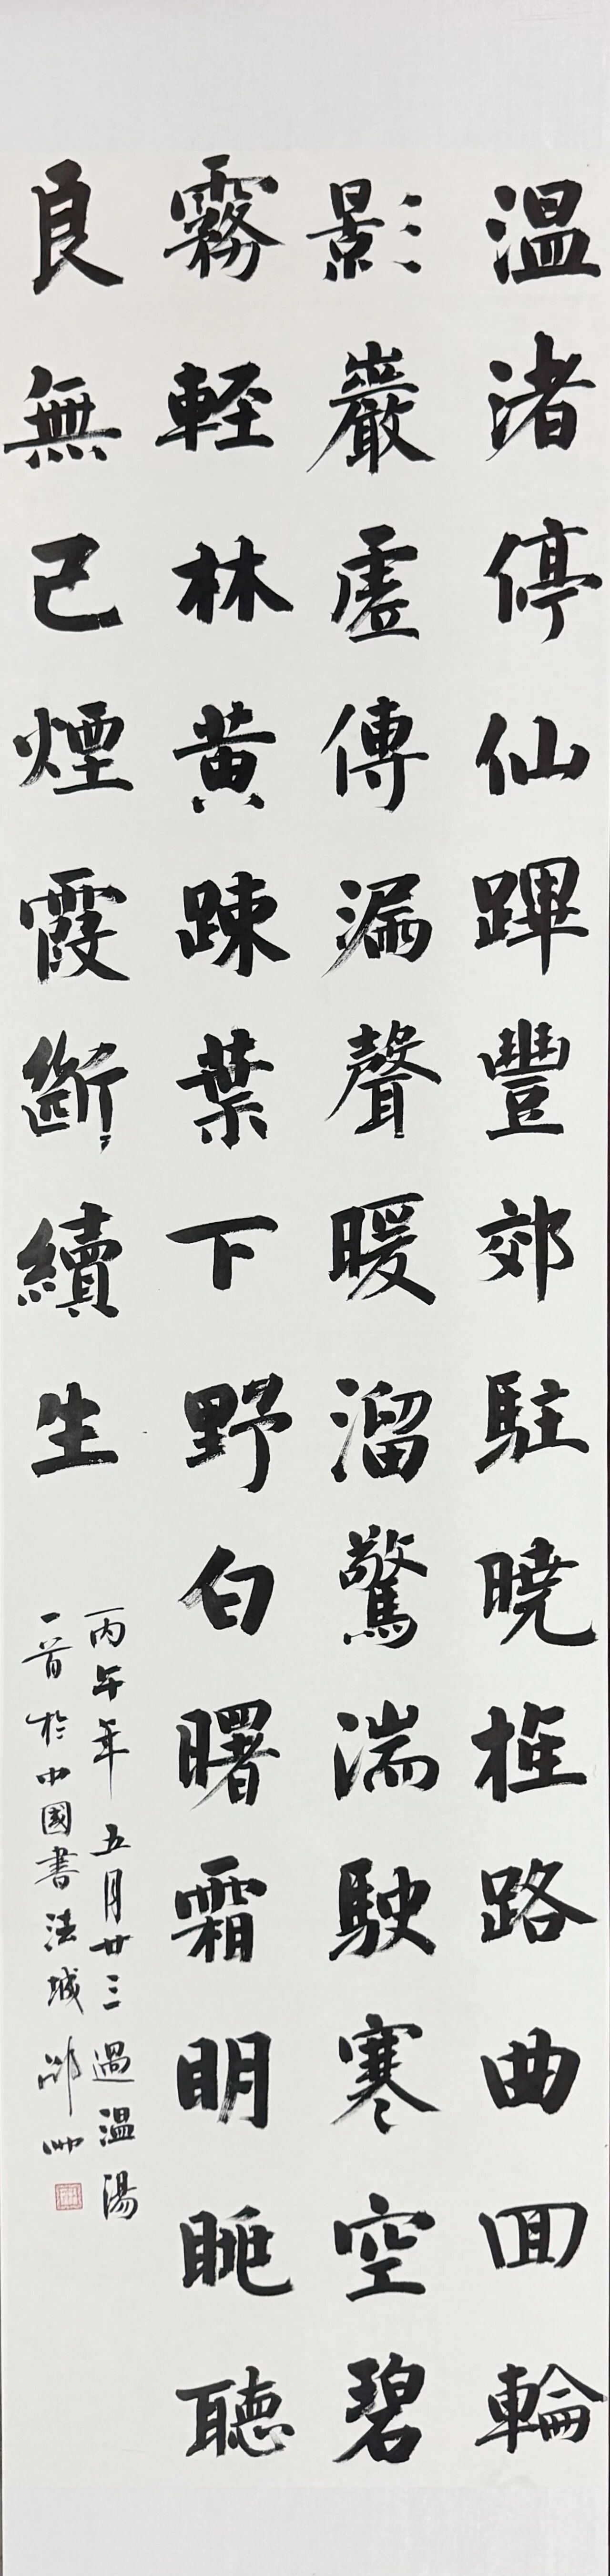 温渚停仙蹕豐郊駐曉旌路曲回輪
影巖虛傳漏聲暖溜驚湍駛寒空碧
霧輕林黄踈葉下野白曙霜明眺聽
良無已煙霞斷續生
丙午年五月廿三過温湯
一首於中國書法城